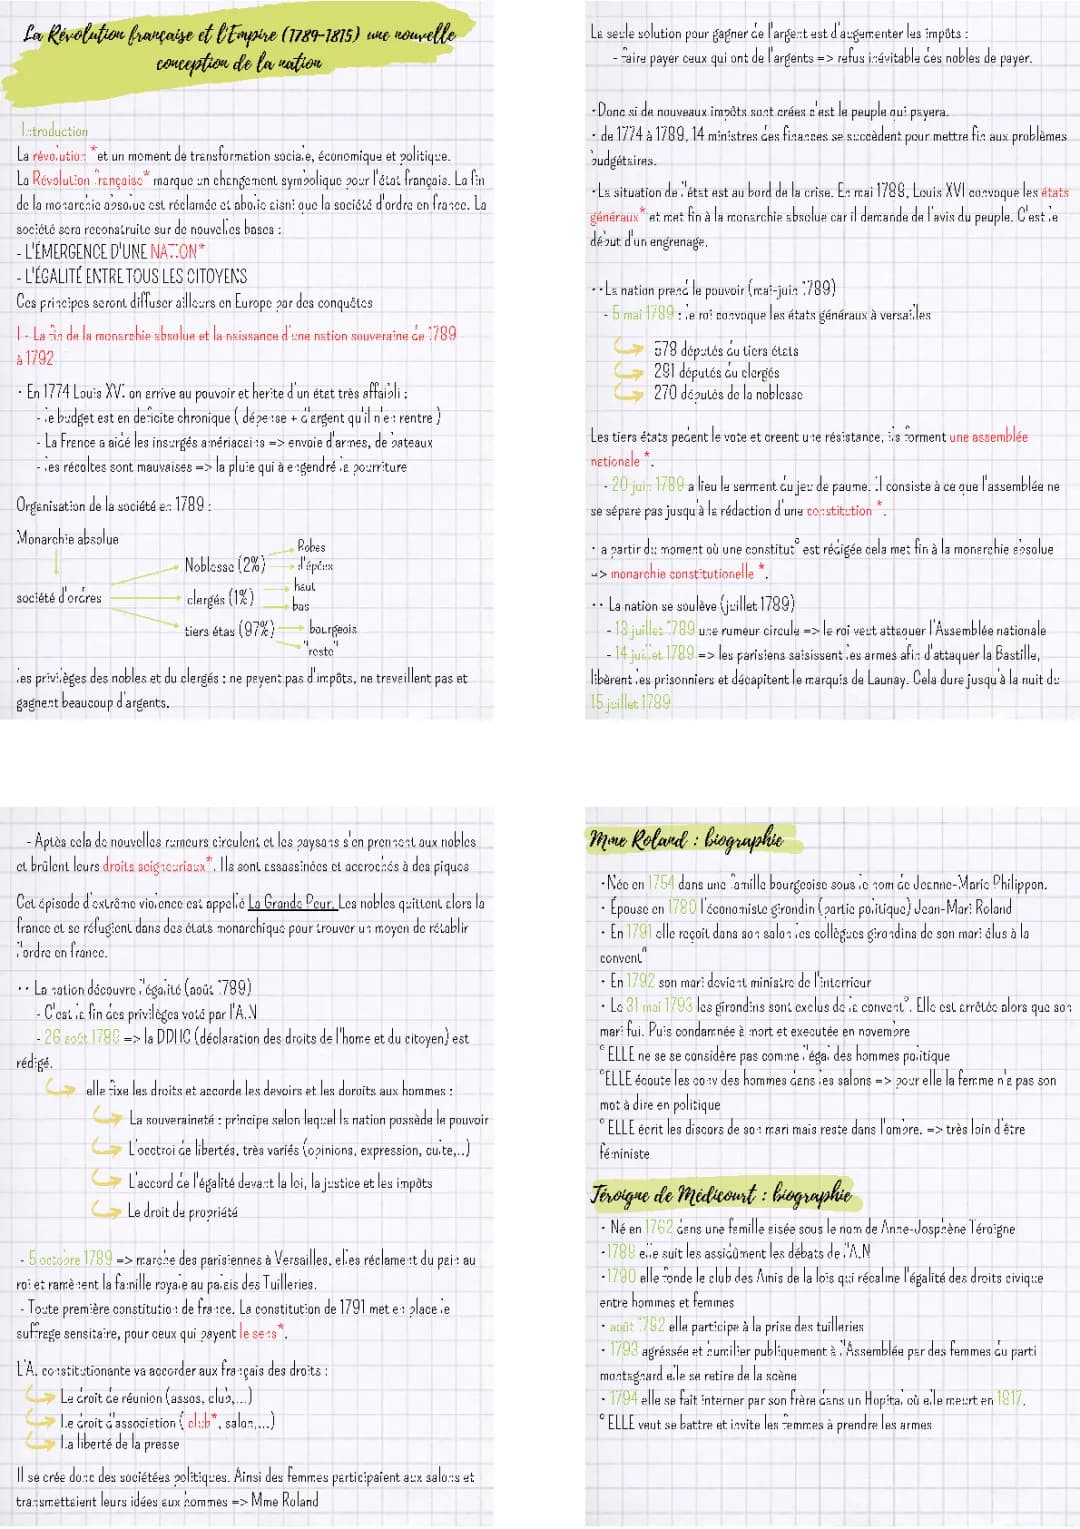 La Révolution française et l'Empire (1789-1815) une nouvelle
conception de la nation
Introduction
La révolution * et un moment de transformation sociale, économique et politique.
La Révolution française* marque un changement symbolique pour l'état français. La fin
de la monarchie absolue est réclamée et abolie aisni que la société d'ordre en france. La
société sera reconstruite sur de nouvelles bases :
- L'ÉMERGENCE D'UNE NATION*
- L'ÉGALITÉ ENTRE TOUS LES CITOYENS
Ces principes seront diffuser ailleurs en Europe par des conquêtes
I - La fin de la monarchie absolue et la naissance d'une nation souveraine de 1789
à 1792
· En 1774 Louis XVI on arrive au pouvoir et herite d'un état très affaibli :
- le budget est en deficite chronique ( dépense + d'argent qu'il n'en rentre )
- La France a aidé les insurgés américains => envoie d'armes, de bateaux
- les récoltes sont mauvaises => la pluie qui à engendré la pourriture
Organisation de la société en 1789 :
Monarchie absolue
société d'ordres
Noblesse (2%)
Robes
d'épéex
clergés (1%)
haut
bas
tiers étas (97%)
bourgeois
"reste"
les privilèges des nobles et du clergés : ne payent pas d'impôts, ne travaillent pas et
gagnent beaucoup d'argents.
La seule solution pour gagner de l'argent est d'augementer les impôts :
- faire payer ceux qui ont de l'argents => refus inévitable des nobles de payer.
·Donc si de nouveaux impôts sont crées c'est le peuple qui payera.
· de 1774 à 1789, 14 ministres des finances se succèdent pour mettre fin aux problèmes
budgétaires.
·La situation de l'état est au bord de la crise. En mai 1789, Louis XVI convoque les états
généraux* et met fin à la monarchie absolue car il demande de l'avis du peuple. C'est le
début d'un engrenage.
··La nation prend le pouvoir (mai-juin 1789)
- 5 mai 1789 : le roi convoque les états généraux à versailles
578 députés du tiers états
291 députés du clergés
270 députés de la noblesse
Les tiers états pedent le vote et creent une résistance, ils forment une assemblée
nationale *.
- 20 juin 1789 a lieu le serment du jeu de paume. il consiste à ce que l'assemblée ne
se sépare pas jusqu'à la rédaction d'une constitution *.
· a partir du moment où une constitut° est rédigée cela met fin à la monarchie absolue
=> monarchie constitutionelle *.
·· La nation se soulève (juillet 1789)
- 13 juillet 1789 une rumeur circule => le roi veut attaquer l'Assemblée nationale
- 14 juillet 1789 => les parisiens saisissent les armes afin d'attaquer la Bastille,
libèrent les prisonniers et décapitent le marquis de Launay. Cela dure jusqu'à la nuit du
15 juillet 1789
- Aptès cela de nouvelles rumeurs circulent et les paysans s'en prennent aux nobles
et brûlent leurs droits seigneuriaux*. Ils sont assassinées et accrochés à des piques
Cet épisode d'extrême violence est appelié La Grande Peur. Les nobles quittent alors la
france et se réfugient dans des états monarchique pour trouver un moyen de rétablir
l'ordre en france.
·· La nation découvre l'égalité (août 1789)
- C'est la fin des privilèges voté par l'A.N
- 26 août 1789 => la DDHC (déclaration des droits de l'home et du citoyen) est
rédigé.
elle fixe les droits et accorde les devoirs et les doroits aux hommes :
La souveraineté : principe selon lequel la nation possède le pouvoir
L'occtroi de libertés, très variés (opinions, expression, culte,..)
L'accord de l'égalité devant la loi, la justice et les impôts
Le droit de propriété
- 5 octobre 1789 => marche des parisiennes à Versailles, elles réclament du pain au
roi et ramènent la famille royale au palais des Tuilleries.
- Toute première constitution de france. La constitution de 1791 met en place le
suffrage sensitaire, pour ceux qui payent le sens*.
L'A. constitutionante va accorder aux français des droits :
Le droit de réunion (assos, club,...)
Le droit d'association ( club*, salon,...)
La liberté de la presse
Il se crée donc des sociétées politiques. Ainsi des femmes participaient aux salons et
transmettaient leurs idées aux hommes => Mme Roland
Mme Roland : biographie
·Née en 1754 dans une famille bourgeoise sous le nom de Jeanne-Marie Philippon.
· Épouse en 1780 l'économiste girondin (partie politique) Jean-Mari Roland
· En 1791 elle reçoit dans son salon les collègues girondins de son mari élus à la
convent°
· En 1792 son mari devient ministre de l'interrieur
· Le 31 mai 1793 les girondins sont exclus de la convent°. Elle est arrêtée alors que son
mari fui. Puis condamnée à mort et executée en novembre
° ELLE ne se se considère pas comme l'égal des hommes politique
°ELLE écoute les conv des hommes dans les salons => pour elle la femme n'a pas son
mot à dire en politique
° ELLE écrit les discors de son mari mais reste dans l'ombre. => très loin d'être
féministe
Téroigne de Médicourt : biographie
· Né en 1762 dans une famille aisée sous le nom de Anne-Josphène Téroigne
·1789 elle suit les assidûment les débats de l'A.N
·1790 elle fonde le club des Amis de la lois qui récalme l'égalité des droits civique
entre hommes et femmes
· août 1792 elle participe à la prise des tuilleries
· 1793 agréssée et humilier publiquement à l'Assemblée par des femmes du parti
montagnard elle se retire de la scène
· 1794 elle se fait interner par son frère dans un Hopital où elle meurt en 1817.
° ELLE veut se battre et invite les femmes à prendre les armes